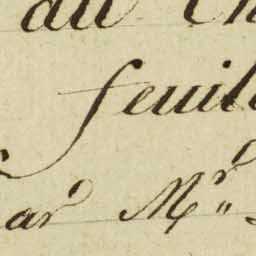 au Ch
feuil
ar Mr